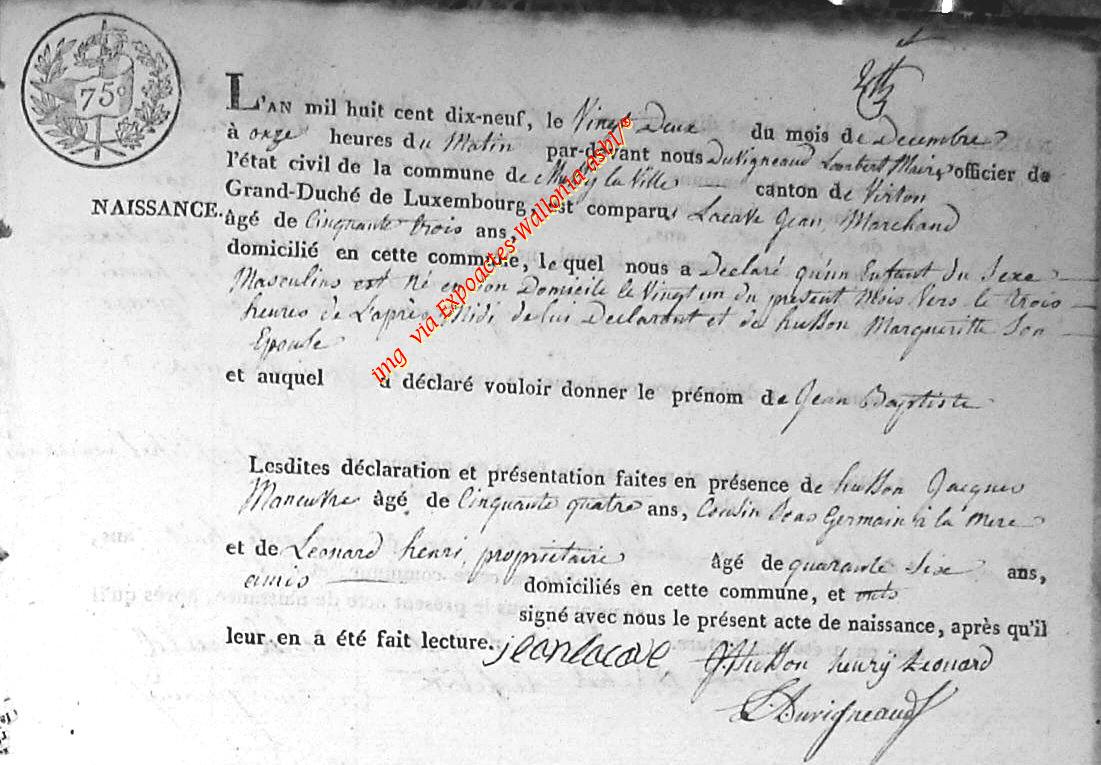 75c
L'AN mil huit cent dix-neuf, le Vingt Deux du mois de Decembre
à onze heures du Matin par-devant nous Duvigneaud Lambert Maire officier de
l'état civil de la commune de la Ville canton de Virton
Grand-Duché de Luxembourg, est comparu Lacave Jean, Marchand
NAISSANCE.
âgé de Cinquante trois ans,
domicilié en cette commune, le quel nous a Declaré qu'un Enfant du Sexe
Masculins est Né en son Domicile le Vingt un du present Mois Vers le trois
heures de L'après Midi de lui Declarant et de husson Margueritte Son
Epouse
et auquel a déclaré vouloir donner le prénom de Jean Baptiste
Lesdites déclaration et présentation faites en présence de husson Jacques
Maneuvre âgé de Cinquante quatre ans, Cousin Germain à la Mere
et de Leonard henri, proprietaire âgé de quarante Six ans,
amis domiciliés en cette commune, et onts
signé avec nous le présent acte de naissance, après qu'il
leur en a été fait lecture. jean lacave J husson henry Leonard
L Duvigneaud
img via Expoactes Wallonia asbl/©